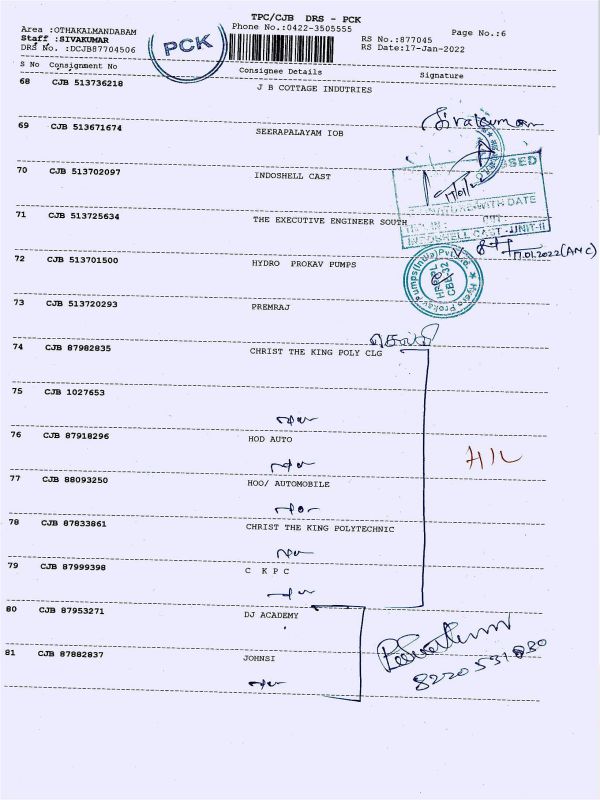 TPC/CJB DRS - PCK
Area :OTHAKALMANDABAM
Phone No.:0422-3505555
Page No.:6
Staff :SIVAKUMAR
RS No.:877045
DRS No. :DCJB87704506
RS Date:17-Jan-2022
PCK
S No Consignment No Consignee Details Signature
68 CJB 513736218 J B COTTAGE INDUTRIES
69 CJB 513671674 SEERAPALAYAM IOB
70 CJB 513702097 INDOSHELL CAST
71 CJB 513725634 THE EXECUTIVE ENGINEER SOUTH
INDOSHELL CAST - UNIT-II
72 CJB 513701500 HYDRO PROKAV PUMPS
17.01.2022
Hydro Prokav Pumps (India) Pvt. Ltd.
73 CJB 513720293 PREMRAJ
74 CJB 87982835 CHRIST THE KING POLY CLG
75 CJB 1027653
76 CJB 87918296 HOD AUTO
77 CJB 88093250 HOO/ AUTOMOBILE
78 CJB 87833861 CHRIST THE KING POLYTECHNIC
79 CJB 87999398 C K P C
80 CJB 87953271 DJ ACADEMY
81 CJB 87882837 JOHNSI